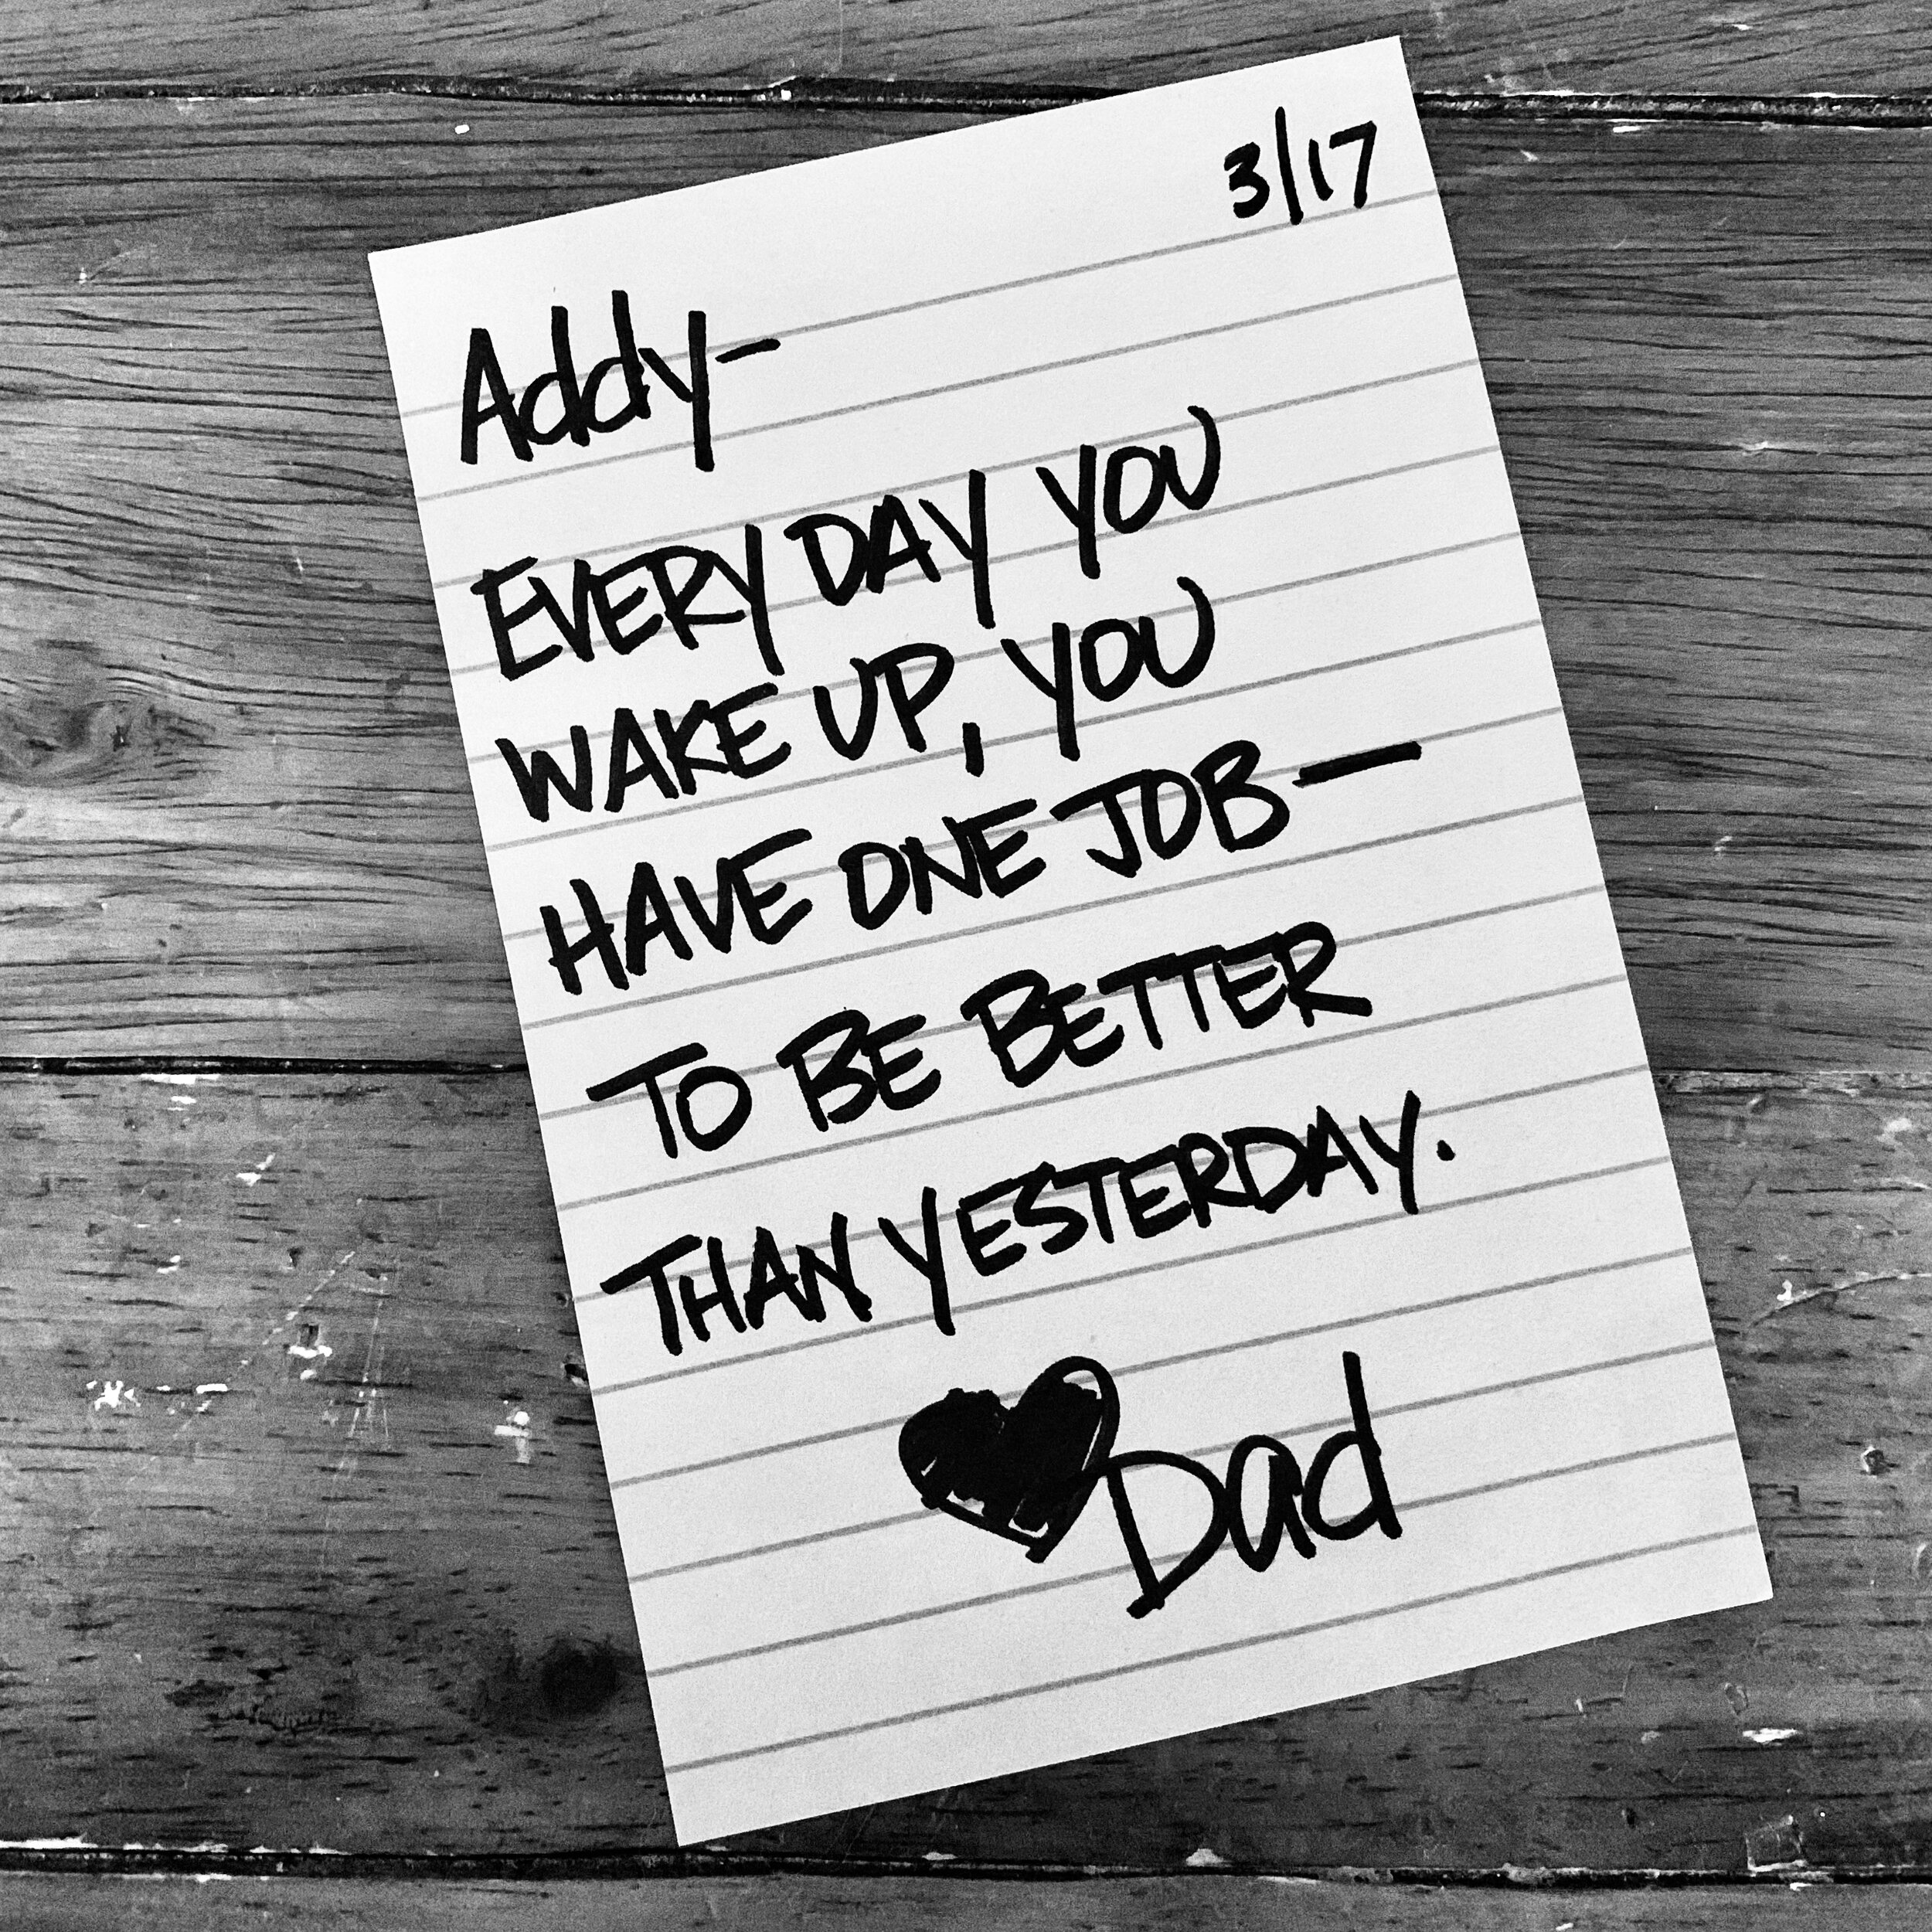 3/17
Addy-
EVERY DAY YOU
WAKE UP, YOU
HAVE ONE JOB—
TO BE BETTER
THAN YESTERDAY.
♥Dad